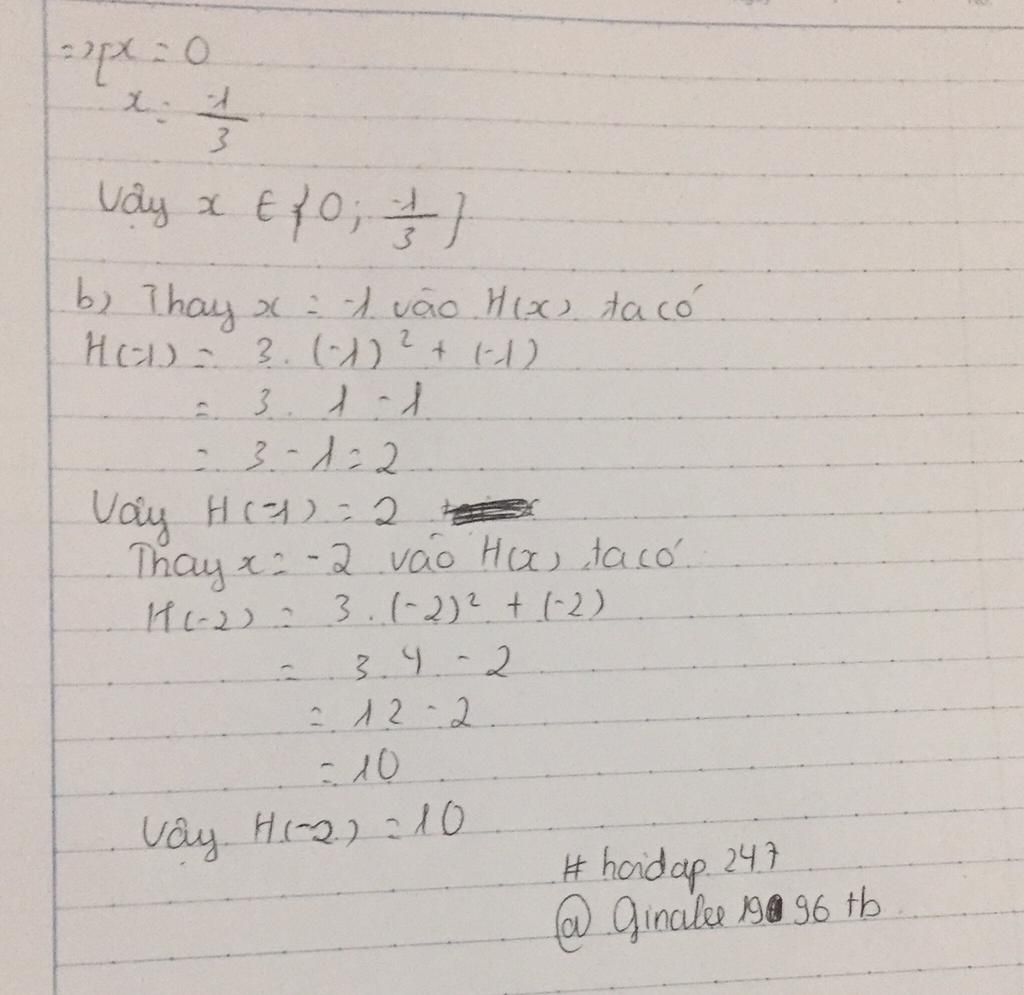 => [x = 0
x = -1/3
Vậy x ∈ {0; -1/3}
b) Thay x = -1 vào H(x) ta có
H(-1) = 3. (-1)² + (-1)
= 3. 1 - 1
= 3 - 1 = 2
Vậy H(-1) = 2
Thay x = -2 vào H(x) ta có
H(-2) = 3. (-2)² + (-2)
= 3. 4 - 2
= 12 - 2
= 10
Vậy H(-2) = 10
# hoidap 247
@ Ginalee 19 96 tb